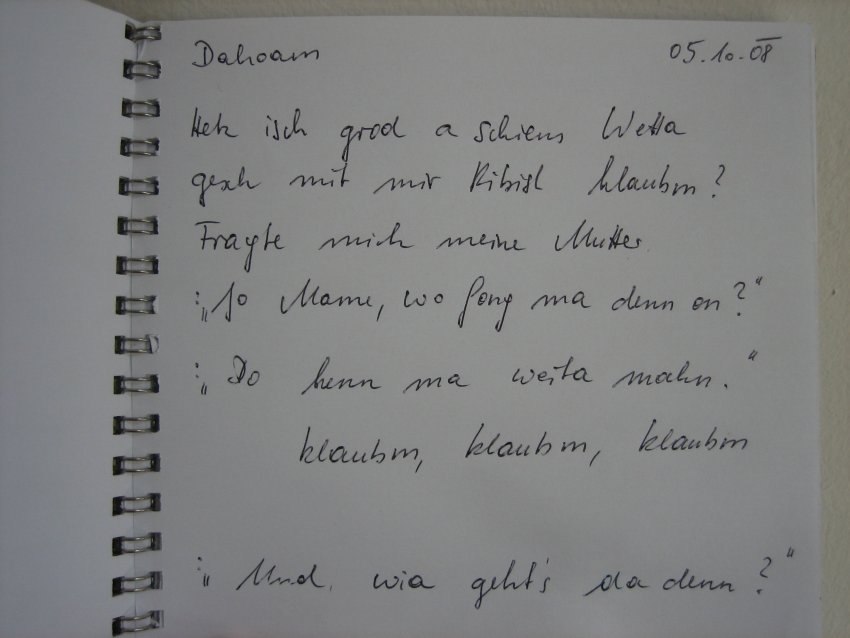 Dahoam 05.10.08
Hetz isch grod a schiens Wetta
gesch mit mir Ribisl klaubm?
Fragte mich meine Mutter.
:„Jo Mame, wo fong ma denn on?“
:„Do kenn ma weita mochn.“
klaubm, klaubm, klaubm
:„Und, wia geht's da denn?“